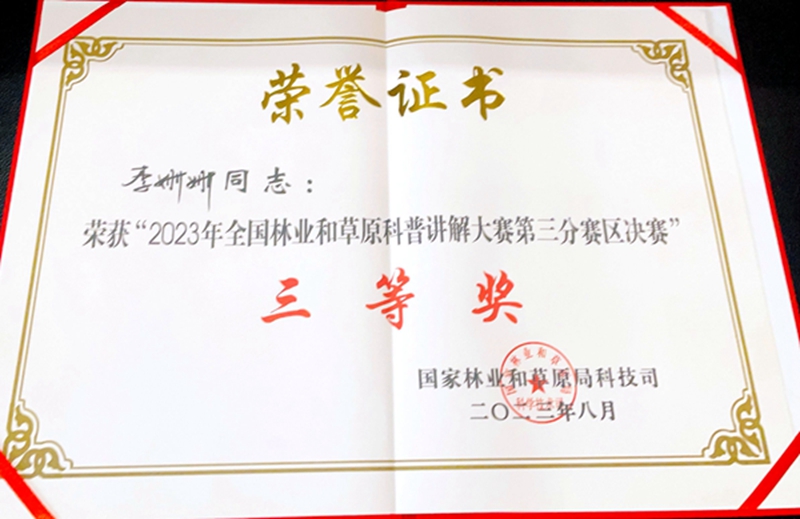 荣誉证书
李姗姗同志：
荣获“2023年全国林业和草原科普讲解大赛第三分赛区决赛”
三等奖
国家林业和草原局科技司
二〇二三年八月